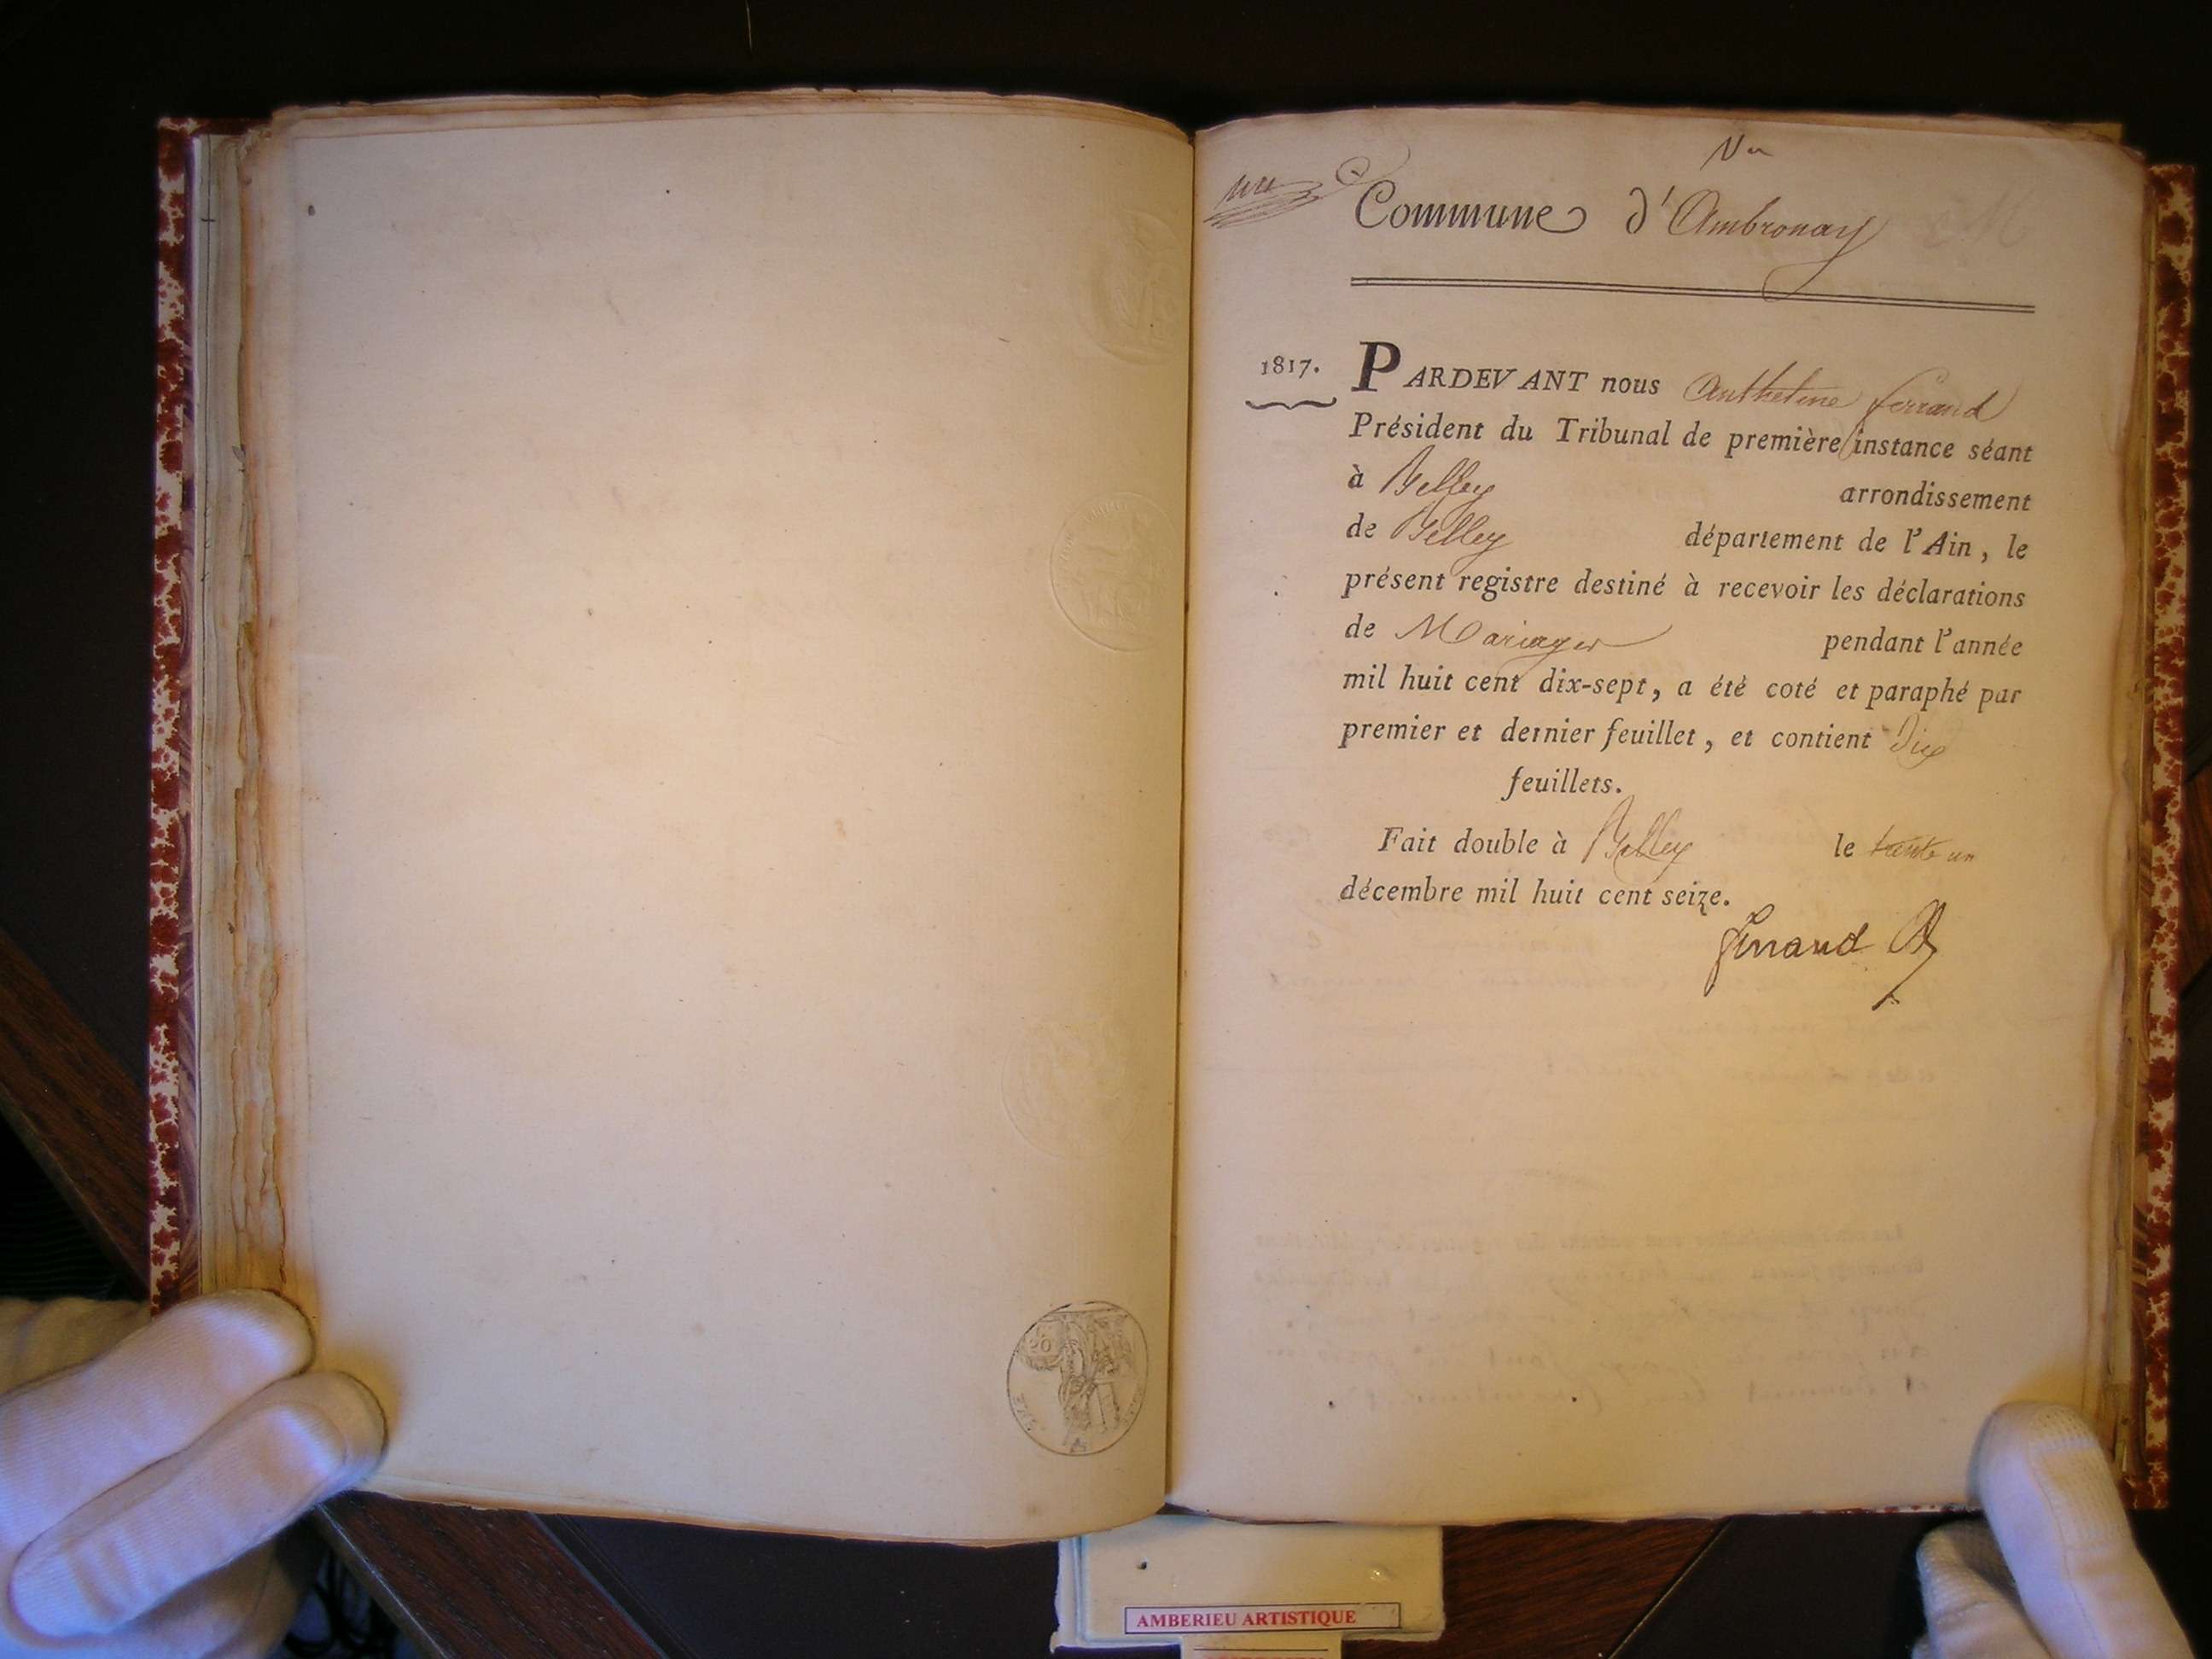 Commune d'Ambronay
1817. PARDEVANT nous Anthelme ferrand
Président du Tribunal de première instance séant
à Belley arrondissement
de Belley département de l'Ain, le
présent registre destiné à recevoir les déclarations
de Mariages pendant l'année
mil huit cent dix-sept, a été coté et paraphé par
premier et dernier feuillet, et contient Dix
feuillets.
Fait double à Belley le trente un
décembre mil huit cent seize.
ferrand
AMBERIEU ARTISTIQUE